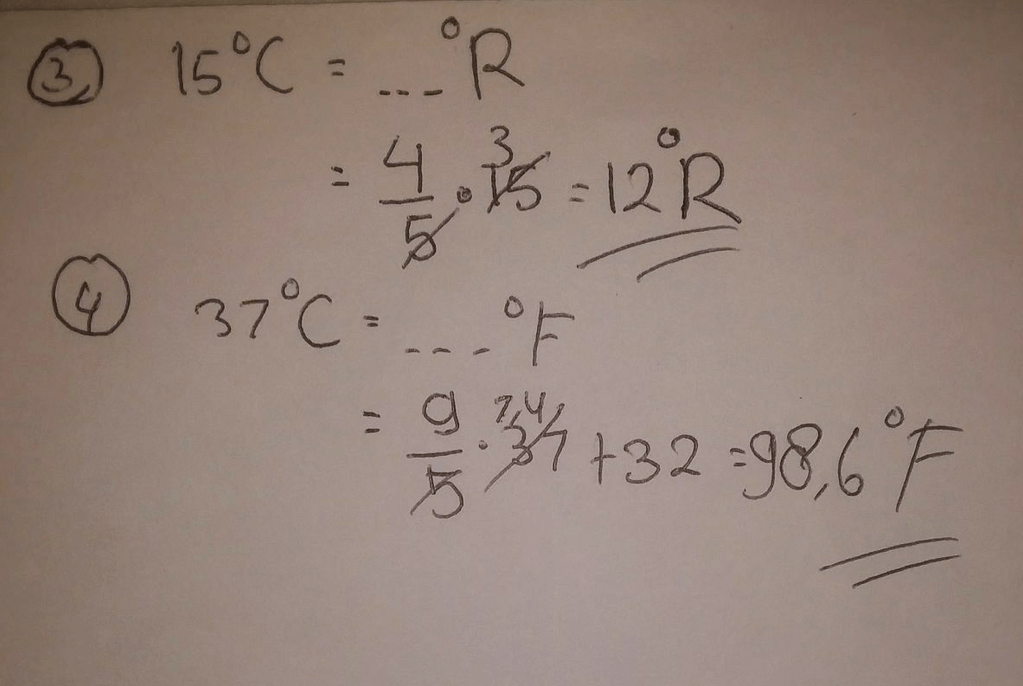 ③ 15°C = ---°R
= 4/5 . 15 3 = 12°R
④ 37°C = ---°F
= 9/5 . 37 7,4 + 32 = 98,6°F